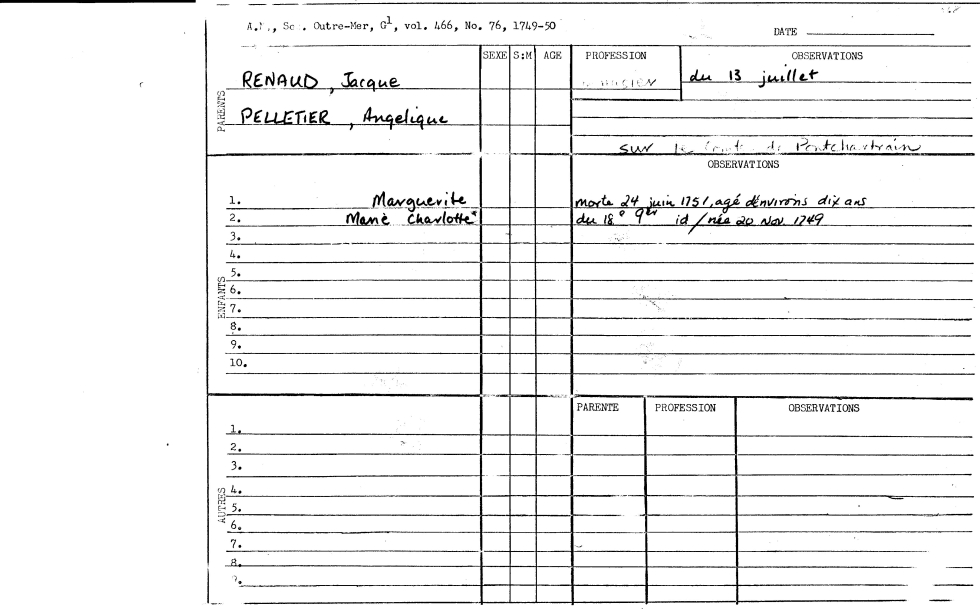 A.N., Sc. Outre-Mer, G1, vol. 466, No. 76, 1749-50
DATE
SEXE S:M AGE PROFESSION OBSERVATIONS
PARENTS
RENAUD, Jacque du 13 juillet
PELLETIER, Angelique
sur le Comte de Pontchartrain
OBSERVATIONS
ENFANTS
1. Marguerite morte 24 juin 1751, agé d'environs dix ans
2. Marie Charlotte* du 18e 9er id / née 20 Nov. 1749
3.
4.
5.
6.
7.
8.
9.
10.
PARENTE PROFESSION OBSERVATIONS
AUTRES
1.
2.
3.
4.
5.
6.
7.
8.
9.